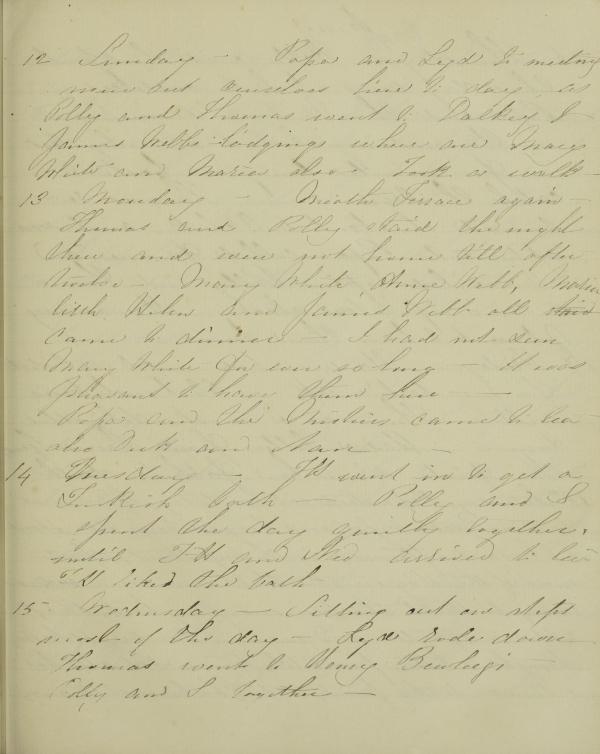 12 Sunday — Papa and Lyd to meeting
ourselves here to day as
Polly and Thomas went to Dalkey to
James Webbs lodgings where are Mary
White and Maria also. Took a walk —
13 Monday — Meath Terrace again —
Thomas and Polly staid the night
there and were not home till after
twelve — Mary White Webb, Maria
Helen and James Webb all
came to dinner — I had not seen
Mary White for ever so long — It was
pleasant to have them here —
Papa and the came to tea
also Dick and —
14 Tuesday — TH went in to get a
Turkish bath — Polly and I
spent the day quietly together,
until TH and Ned arrived to tea
TH liked the bath
15 Wednesday — Sitting out on steps
most of the day — Lyd rode down
Thomas went to Henry Bewleys —
Polly and I together —